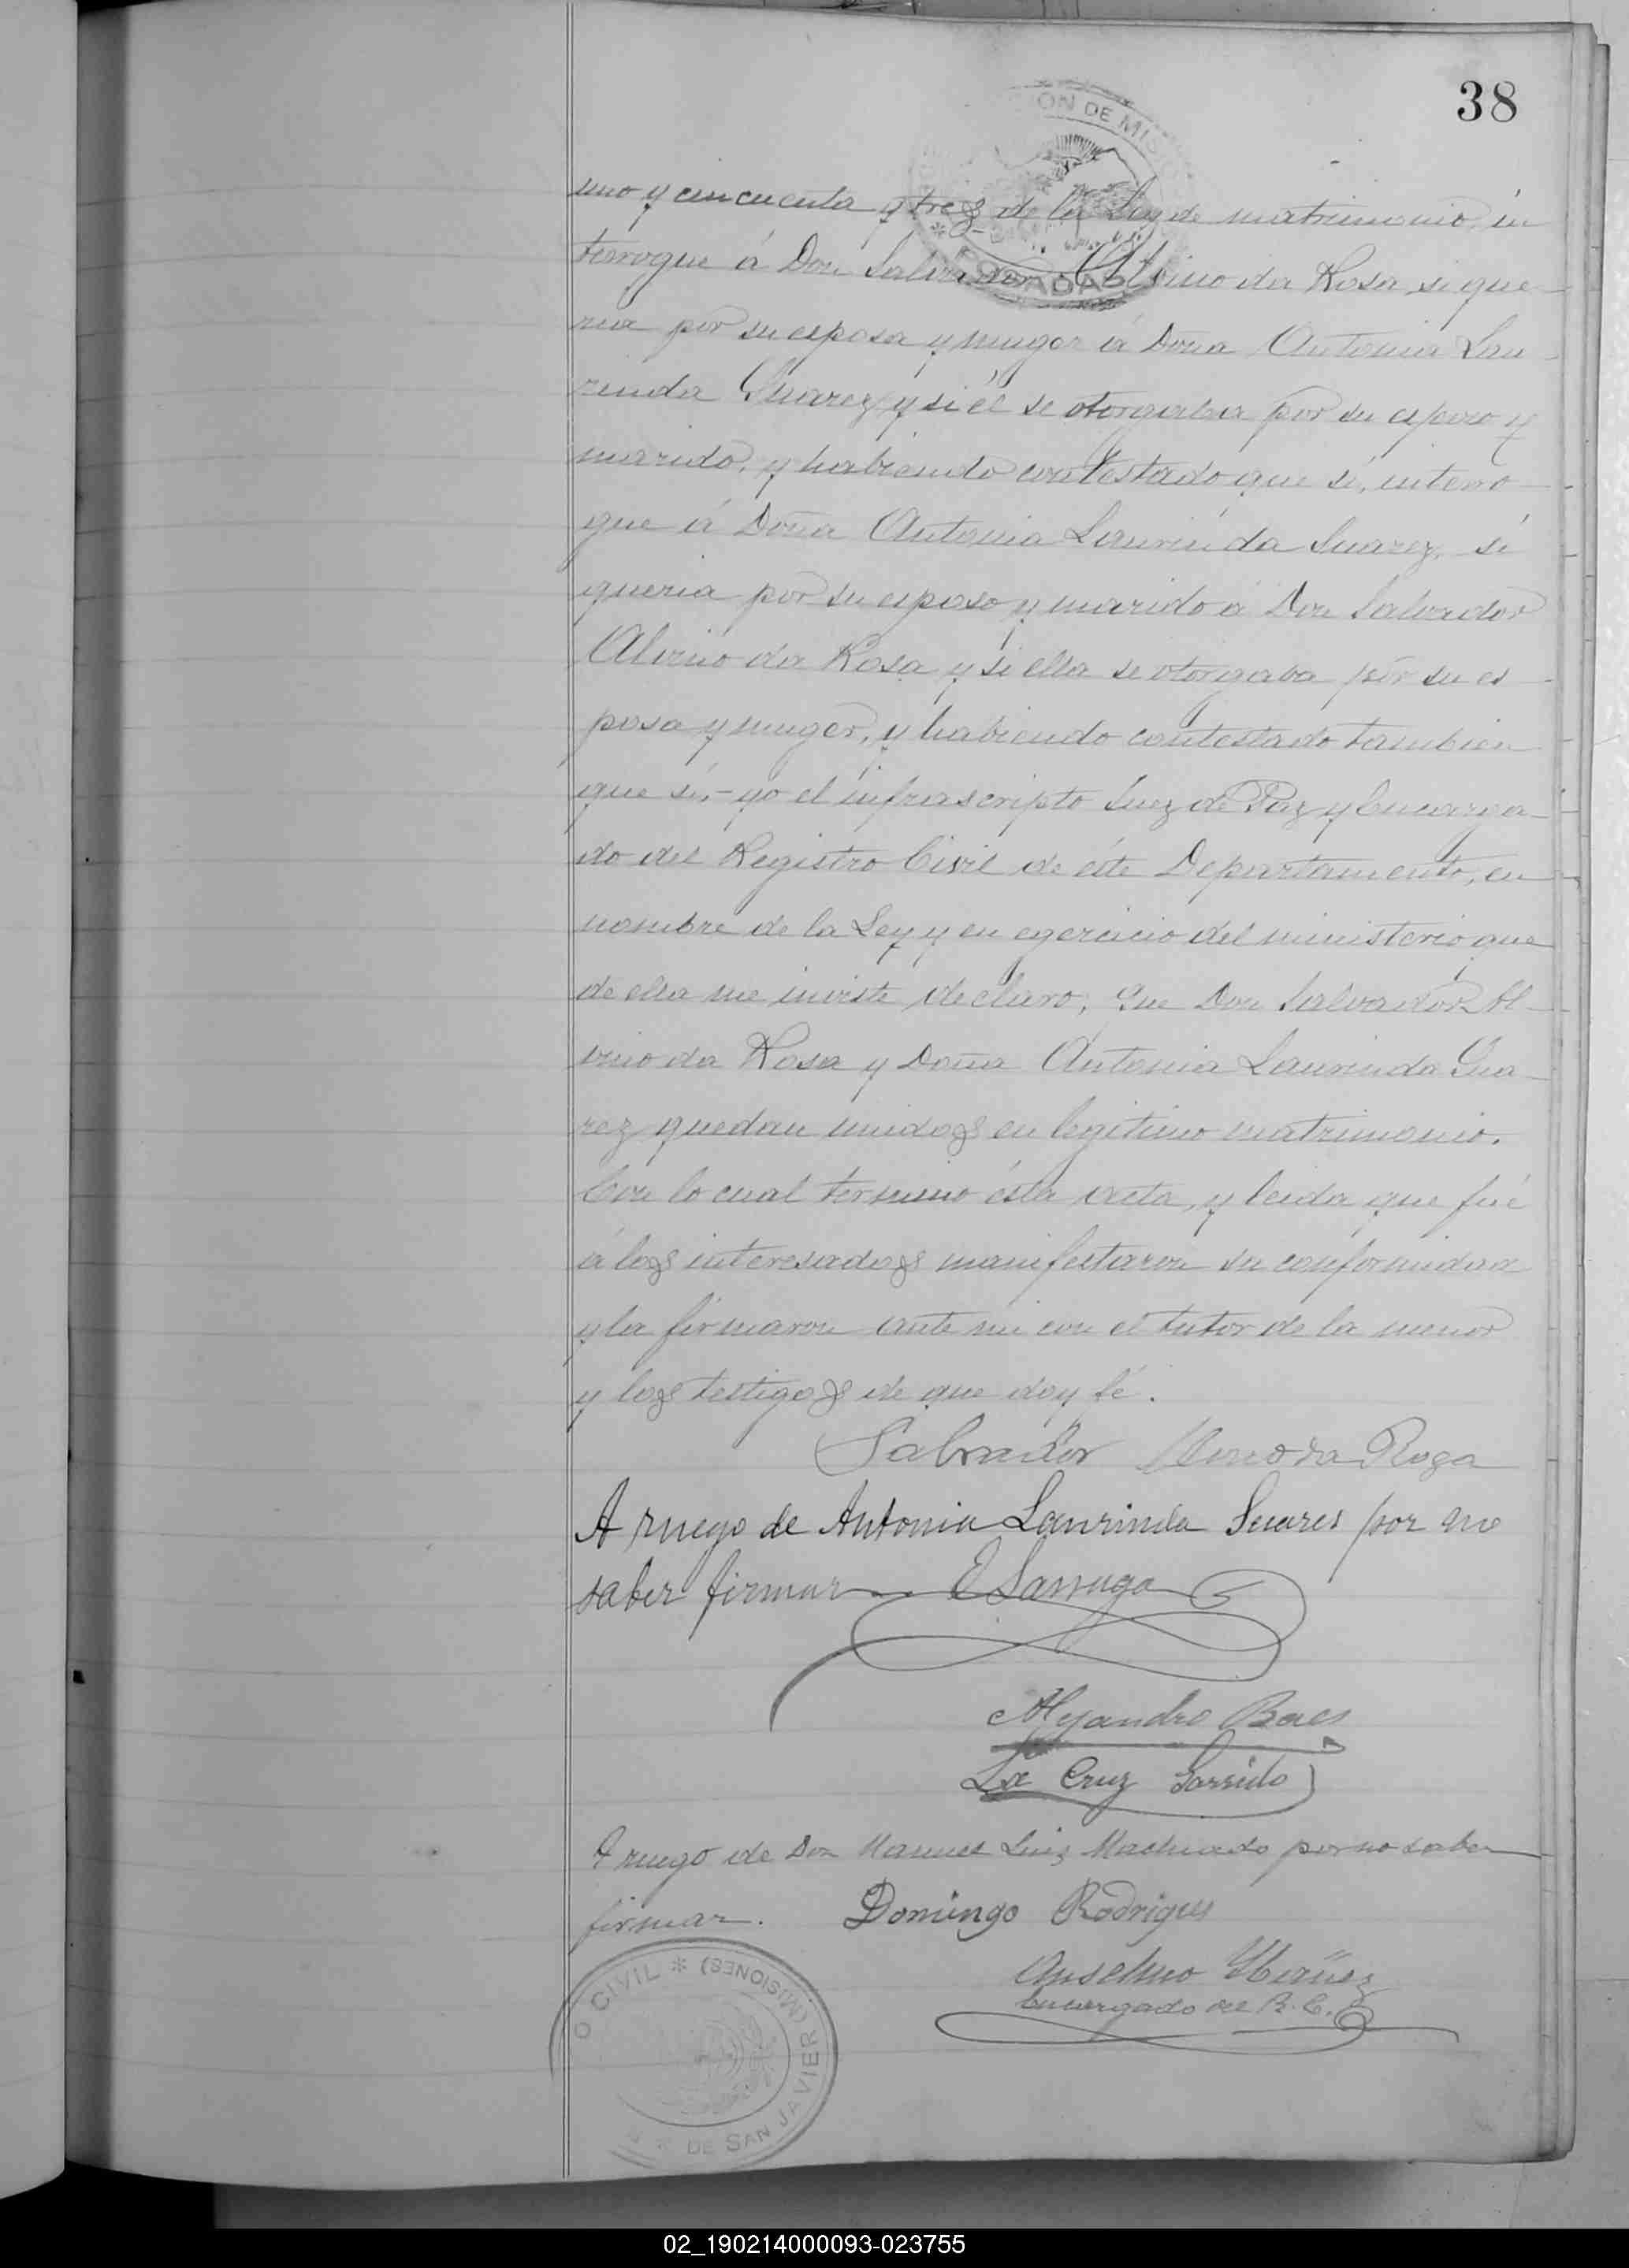 38
ON DE MIS
ADAS
uno y cincuenta y tres de la Ley de matrimonio, in
terrogue á Don Salvador Alvino da Rosa si que-
ria por su esposa y muger á Doña Antonia Lau-
rinda Suarez y si él se otorgaba por su esposo y
marido, y habiendo contestado que sí, interro-
gue á Doña Antonia Laurinda Suarez, si
queria por su esposo y marido á Don Salvador
Alvino da Rosa y si ella se otorgaba por su es-
posa y muger, y habiendo contestado tambien
que sí,- yo el infrascripto Juez de Paz y Encarga-
do del Registro Civil de éste Departamento, en
nombre de la Ley y en egercicio del ministerio que
de ella me inviste declaro; Que Don Salvador Al-
vino da Rosa y Doña Antonia Laurinda Sua-
rez quedan unidos en legitimo matrimonio.
Con lo cual terminó ésta acta, y leida que fué
á los interesados manifestaron su conformidad
y la firmaron ante mi con el tutor de la menor
y los testigos de que doy fé.
Salvador Alvino da Roza
A ruego de Antonia Laurinda Suares por no
saber firmar E Sarruga
Alejandro Baes
La Cruz Garrido
A ruego de Don Manuel Luiz Machado por no saber
firmar. Domingo Rodrigues
Anselmo Ibañez
Encargado del R. C.
O CIVIL * (MISIONES)
DE SAN JAVIER
02_190214000093-023755